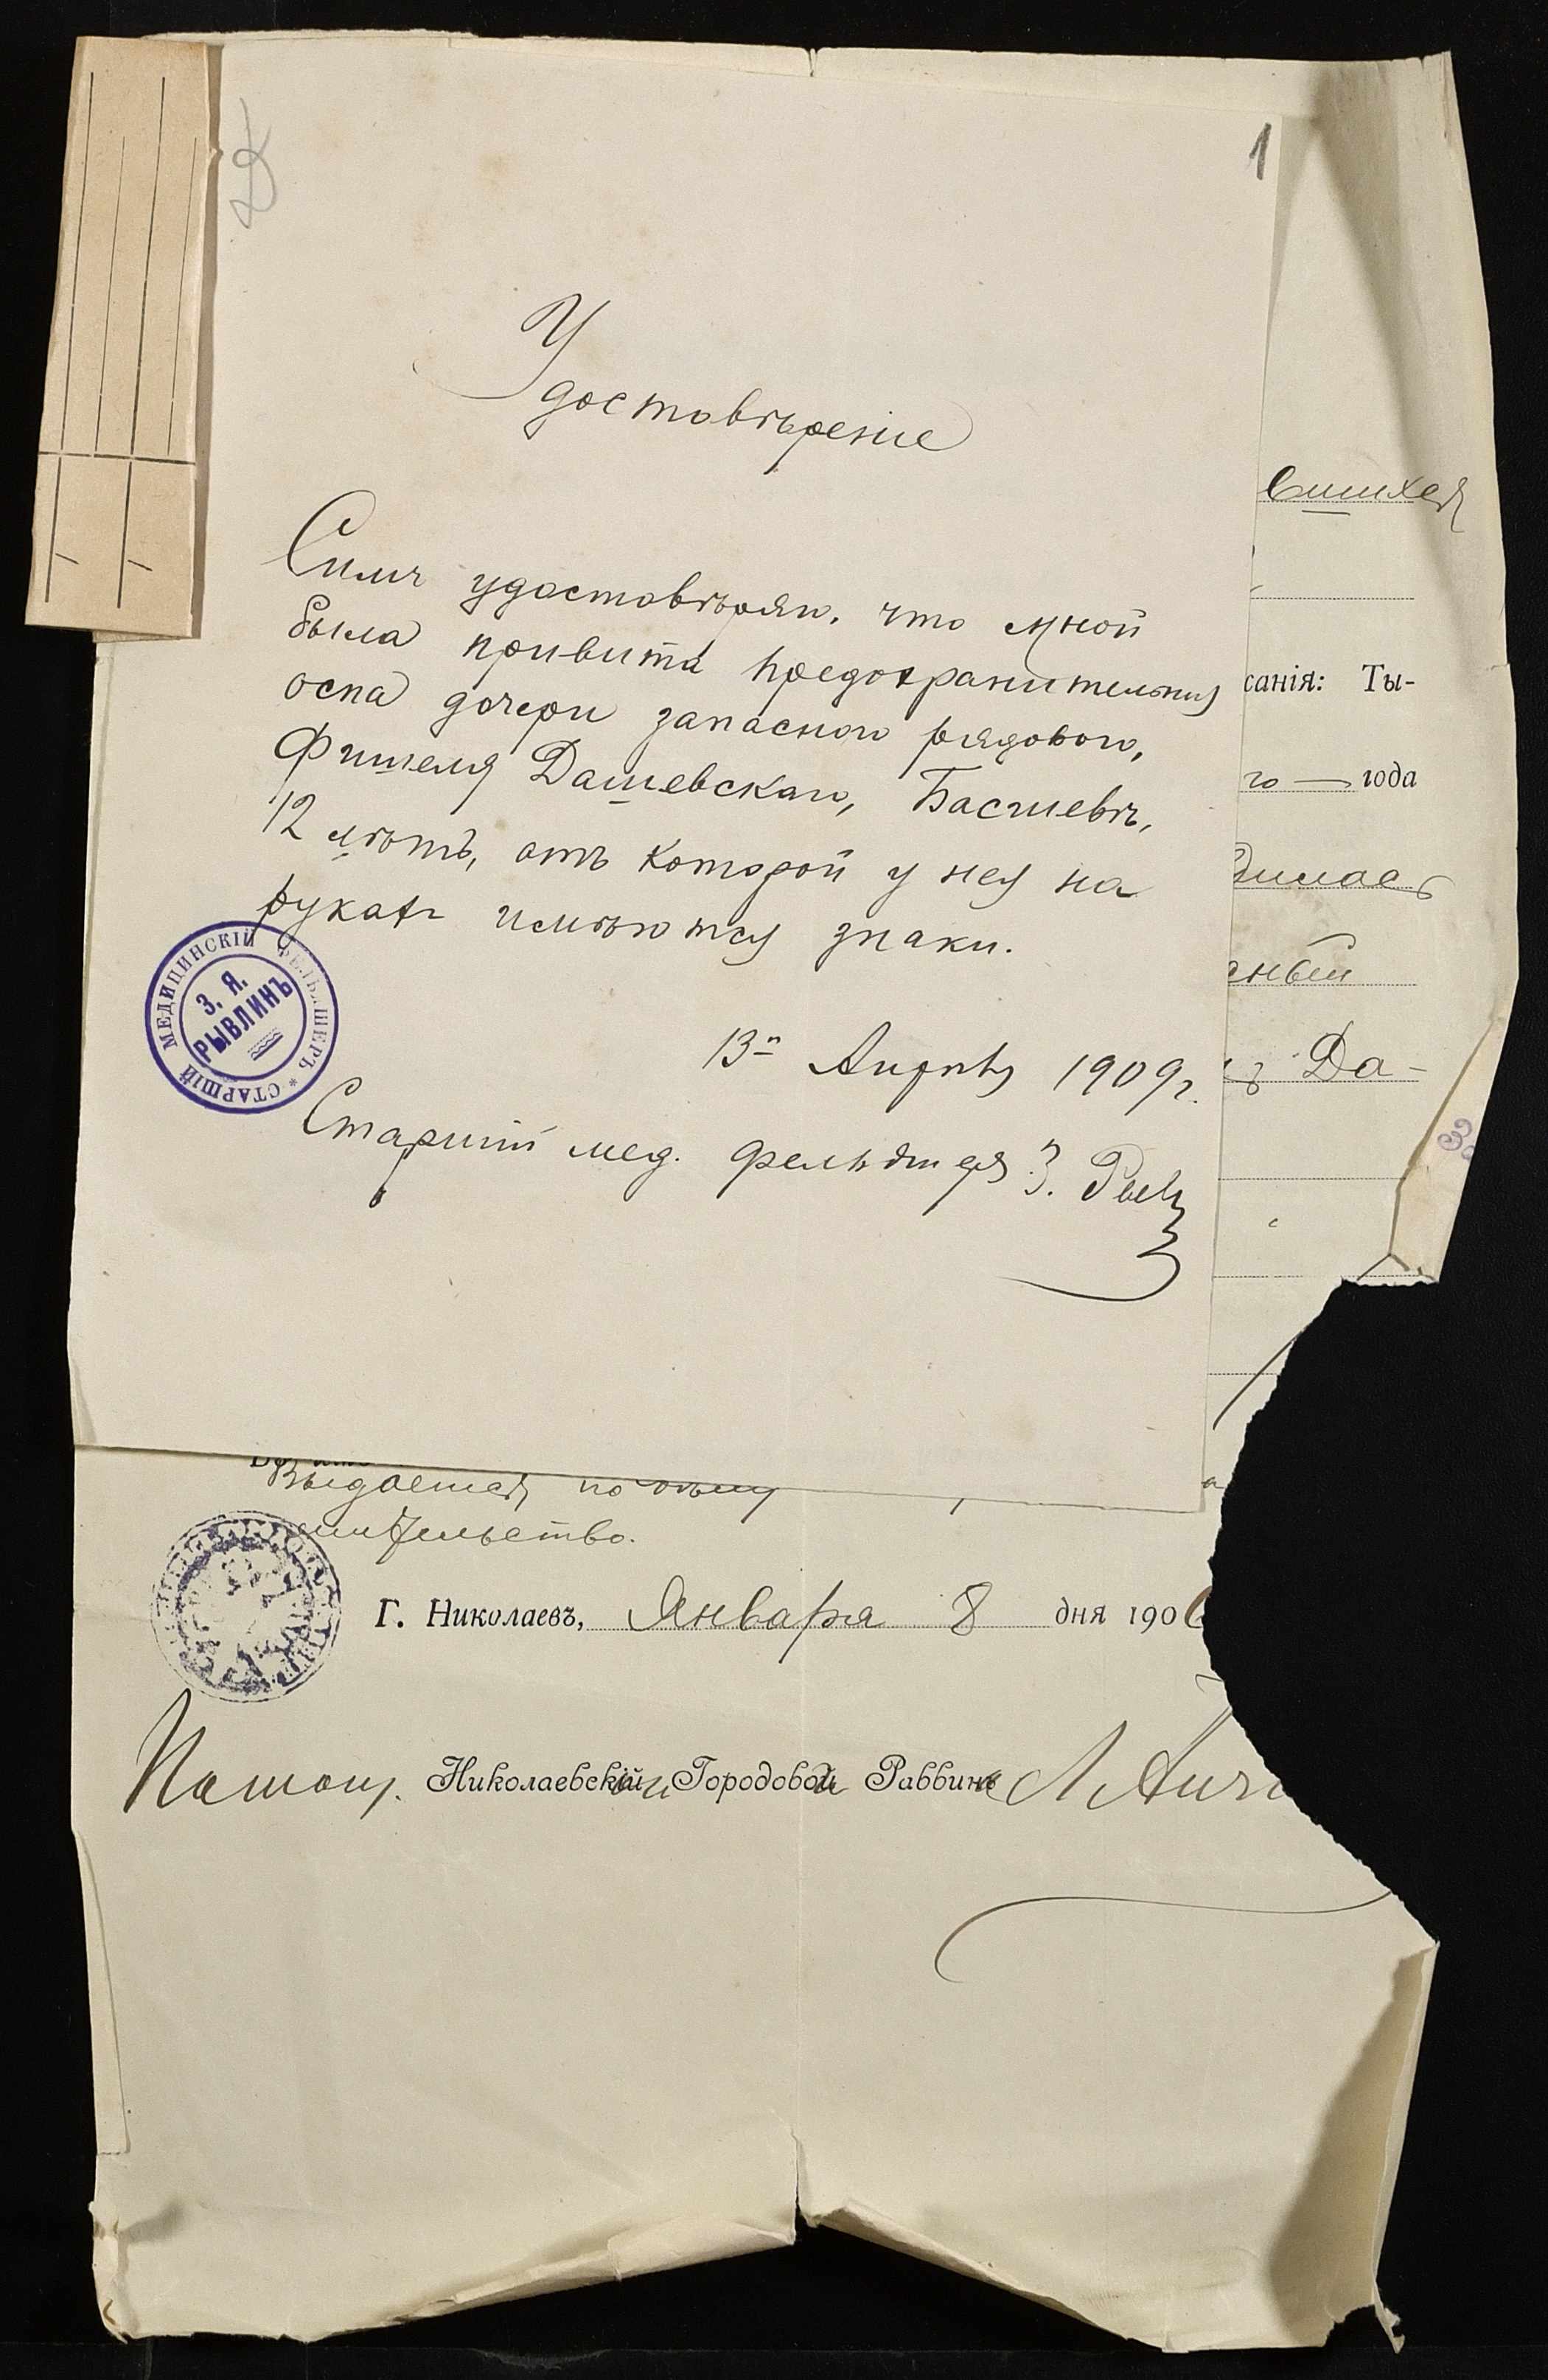 1
Удостовѣреніе
Симъ удостовѣряю, что мной
была привита предохранительная
оспа дочери запасного рядового,
Фишеля Дашевскаго, Басшевѣ,
12 лѣтъ, отъ которой у нея на
рукахъ имѣются знаки.
МЕДИЦИНСКІЙ ФЕЛЬДШЕРЪ * СТАРШІЙ
З. Я.
РЫВЛИНЪ
13го Апрѣля 1909 г.
Старшій мед. фельдшеръ З. Рыв
санія: Ты-
го — года
Да-
Выдается по
Г. Николаевъ, Января 8 дня 190
Помощ. Николаевскій Городовой Раввинъ Л.